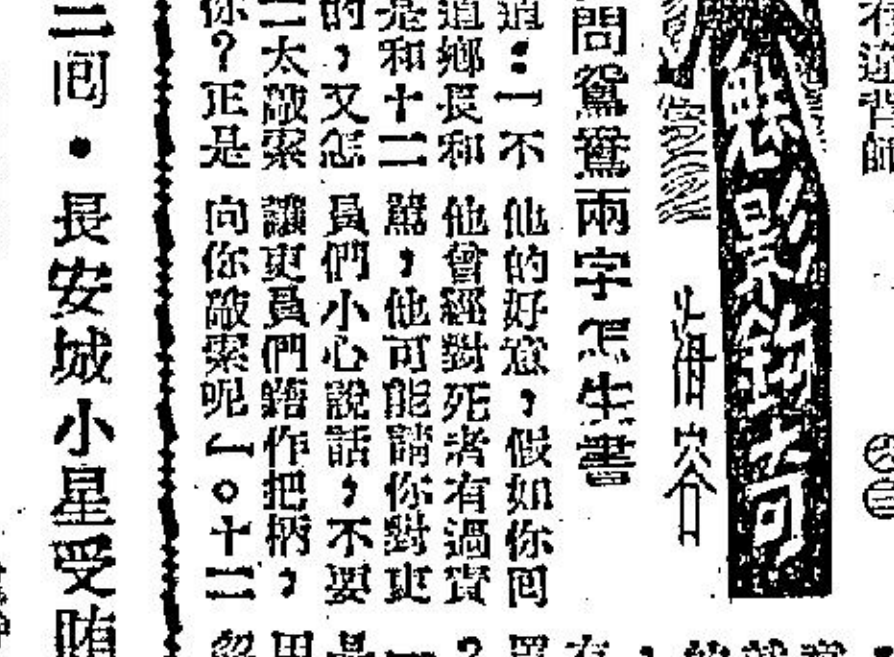 有違背師
魅影
奇
海客
問鴛鴦兩字怎生書
道：「不他的好意，假如你囘
道鄉長和他曾經對死者有過責
是和十二駡，他可能請你對吏
的，又怎員們小心說話，不要
二太敲索讓吏員們藉作把柄，
你？正是向你敲索呢」。十二
二囘·長安城小星受賄